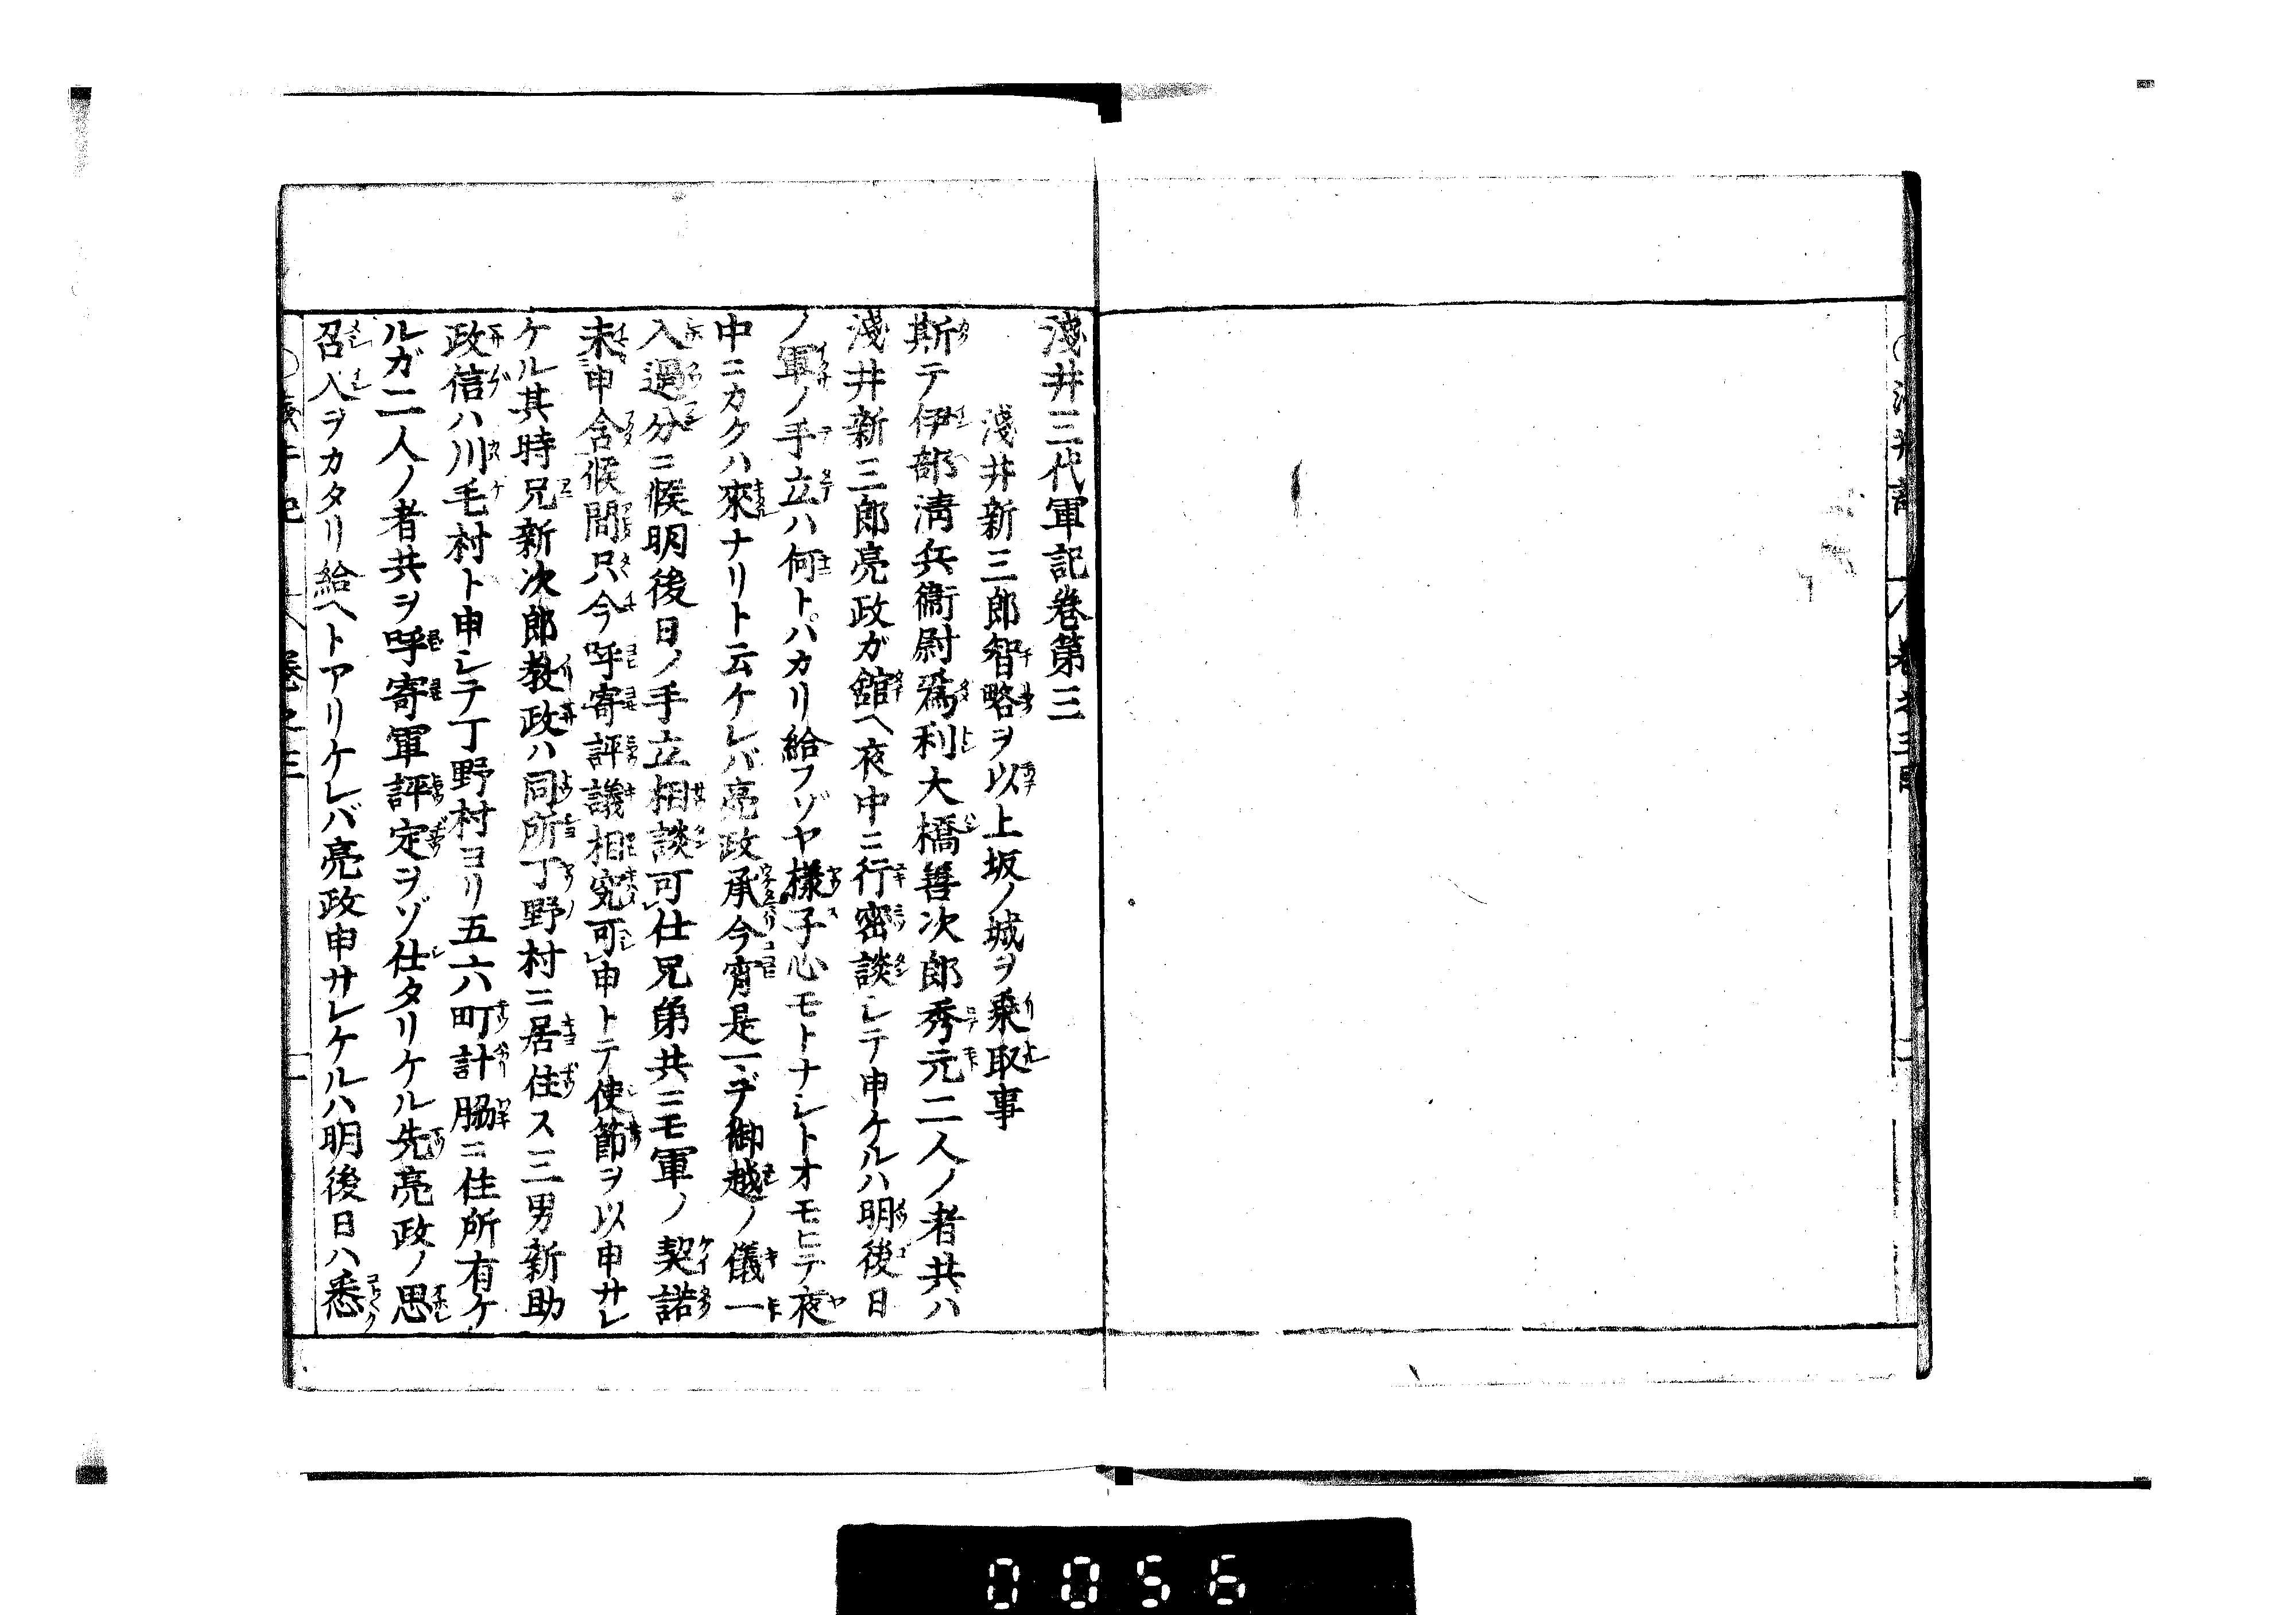 淺井三代軍記卷第三
淺井新三郎智略ヲ以上坂ノ城ヲ乗取事
斯テ伊部淸兵衞尉爲利大橋善次郎秀元二人ノ者共ハ
淺井新三郎亮政ガ舘ヘ夜中ニ行密談シテ申ケルハ明後日
ノ軍ノ手立ハ何トハカリ給フゾヤ樣子心モトナシトオモヒテ夜
中ニカクハ來ナリト云ケレバ亮政承今宵是マデ御越ノ儀一
入過分ニ候明後日ノ手立相談可仕兄弟共ニモ軍ノ契諾
未申含候間只今呼寄評議相究可申トテ使節ヲ以申サレ
ケル其時兄新次郎教政ハ同所丁野村ニ居住ス三男新助
政信ハ川毛村ト申シテ丁野村ヨリ五六町計脇ニ住所有ケ
ルガ二人ノ者共ヲ呼寄軍評定ヲゾ仕タリケル先亮政ノ思
召入ヲカタリ給ヘトアリケレバ亮政申サレケルハ明後日ハ悉
卷之三
0056